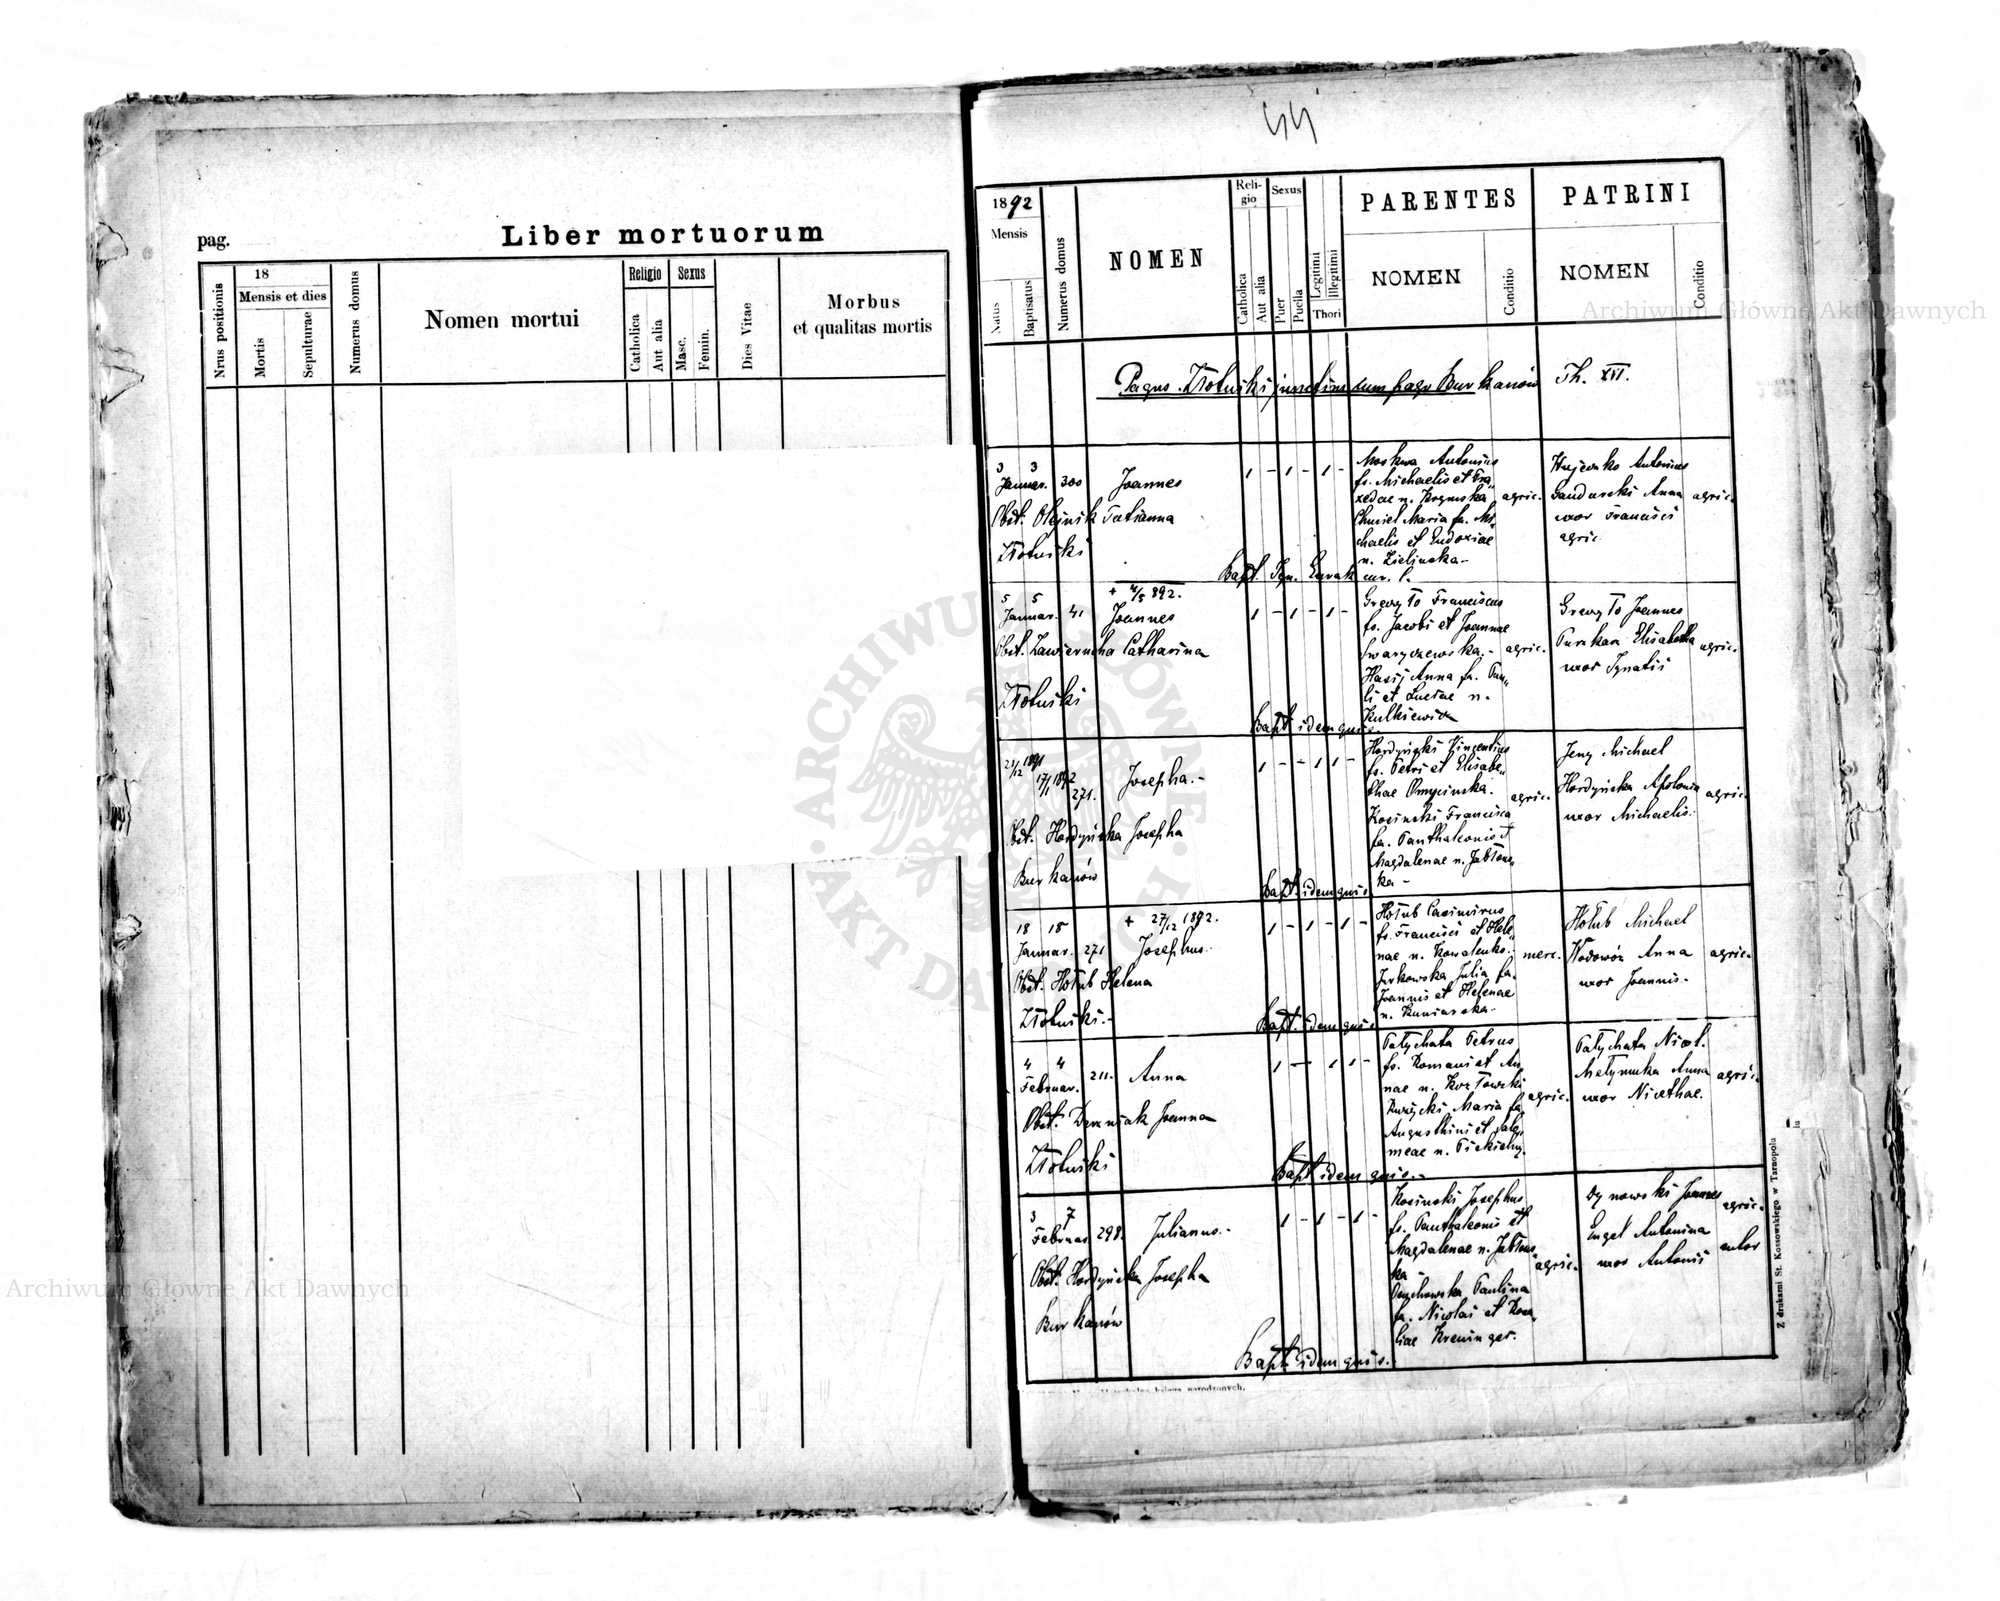 pag.
Liber mortuorum
Nrus positionis
18
Mensis et dies
Mortis
Sepulturae
Numerus domus
Nomen mortui
Religio
Catholica
Aut alia
Sexus
Masc.
Femin.
Dies Vitae
Morbus
et qualitas mortis
1892
Mensis
Natus
Baptisatus
Numerus domus
NOMEN
Reli-
gio
Catholica
Aut alia
Sexus
Puer
Puella
Legitimi
Illegitimi
Thori
PARENTES
NOMEN
Conditio
PATRINI
NOMEN
Conditio
Pagus Złotniki junctim cum pago Burkanów Th. XVI.
3 3
Januar. 300 Joannes
Obst. Olejnik Tatianna
Złotniki
1 - 1 - 1 -
Moskwa Antonius
fs. Michaelis et Pra„
xedae n.
Chmiel Maria fa. Mi„
chaelis et Eudoxiae
n. Zielinska -
agric.
Antonius
Anna
uxor Francisci
agric.
agric.
Bapt. Ign.
5 5
Januar. 41
+ 4/5 892.
Joannes
Obst. Zawierucha Catharina
Złotniki
1 - 1 - 1 -
Franciscus
fs. Jacobi et Joannae
Swaryczewska. -
Anna fa. Pau„
li et Luciae n.
Kulkiewicz
agric.
Joannes
Elisabetha
uxor Ignatii
agric.
Bapt. idem quis.
21/12 1891
17/1 1892
271.
Josepha. -
Obst. Hordyńska Josepha
Burkanów
1 - - 1 1 -
Hordyński Vincentius
fs. Petri et Elisabe„
thae
Kosinski Francisca
fa. Panthaleonis et
Magdalenae n. Jabłons„
ka -
agric.
Jeny Michael
Hordyńska Apolonia
uxor Michaelis.
agric.
Bapt. idem quis
18 18
Januar. 271
+ 27/12 1892.
Josephus. -
Obst. Hołub Helena
Złotniki. -
1 - 1 - 1 -
Hołub Casimirus
fs. Francisci et Hele„
nae n. Kowalenko.
Jurkowska Julia fa.
Joannis et Helenae
n.
merc.
Hołub Michael
Wodowóz Anna
uxor Joannis. -
agric.
Bapt. idem quis
4 4
Februar. 211. Anna
Obst. Joanna
Złotniki
1 - 1 1 -
Patychata Petrus
fs. Romani et An„
nae n. Kozłowski
Maria fa.
Augusthini et Salo„
meae n.
agric.
Patychata Nicol.
Anna
uxor Nicethae.
agric.
Bapt. idem quis. -
3 7
Februar. 298. Julianus. -
Obst. Hordyńska Josepha
Burkanów
1 - 1 - 1 -
Kosinski Josephus
fs. Panthaleonis et
Magdalenae n. Jabłons„
ka -
Paulina
fa. Nicolai et Rosa„
liae Kreminger.
agric.
Dynowski Joannes
Engel Antonina
uxor Antonii
agric.
Bapt. idem quis. -
Z drukarni St. Kossowskiego w Tarnopolu
księga narodzonych.
Archiwum Główne Akt Dawnych
ARCHIWUM GŁÓWNE AKT DAWNYCH
Archiwum Główne Akt Dawnych